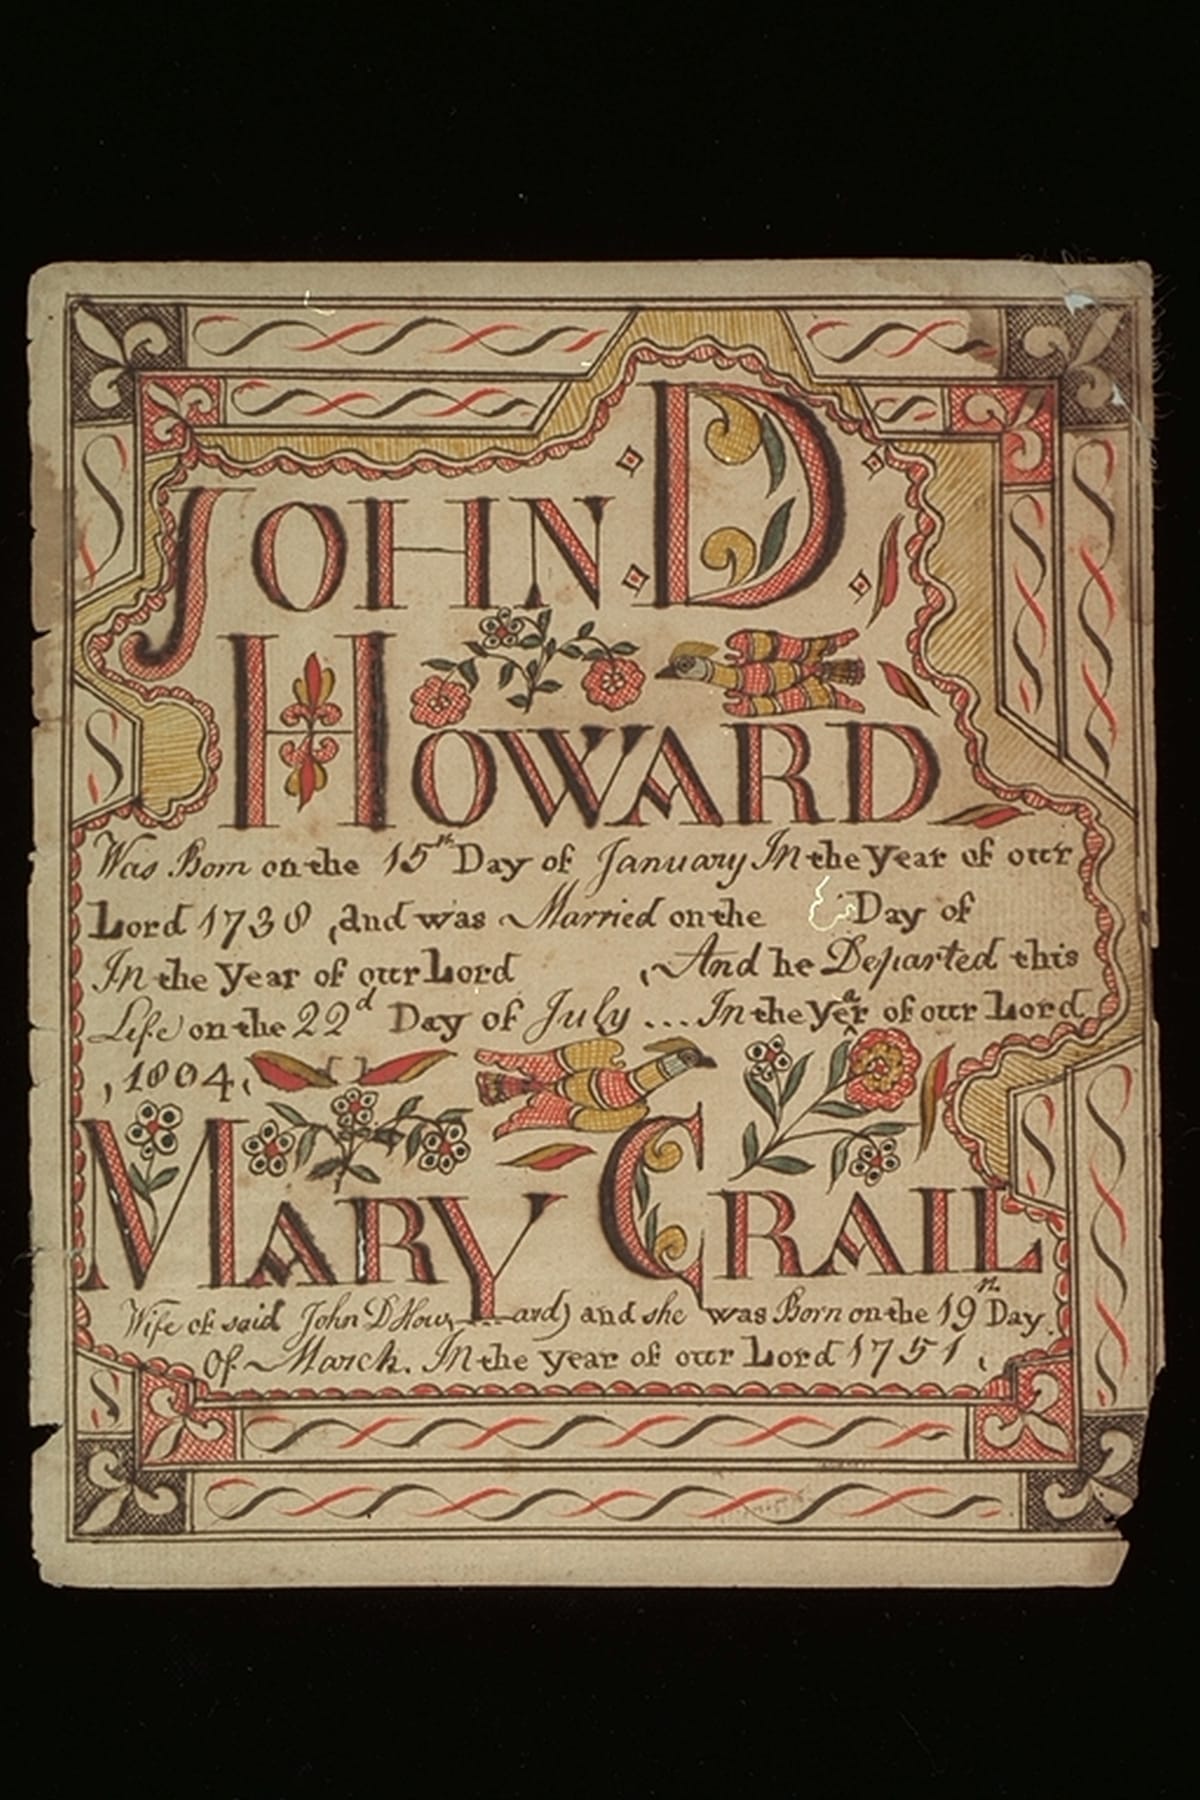 JOHN D
HOWARD
Was Born on the 15th Day of January In the year of our
Lord 1738, and was Married on the Day of
In the year of our Lord , And he Departed this
Life on the 22d Day of July ... In the year of our Lord
, 1804.
MARY CRAIL
Wife of said John D How.....ard) and she was Born on the 19th Day
Of March. In the year of our Lord 1751.